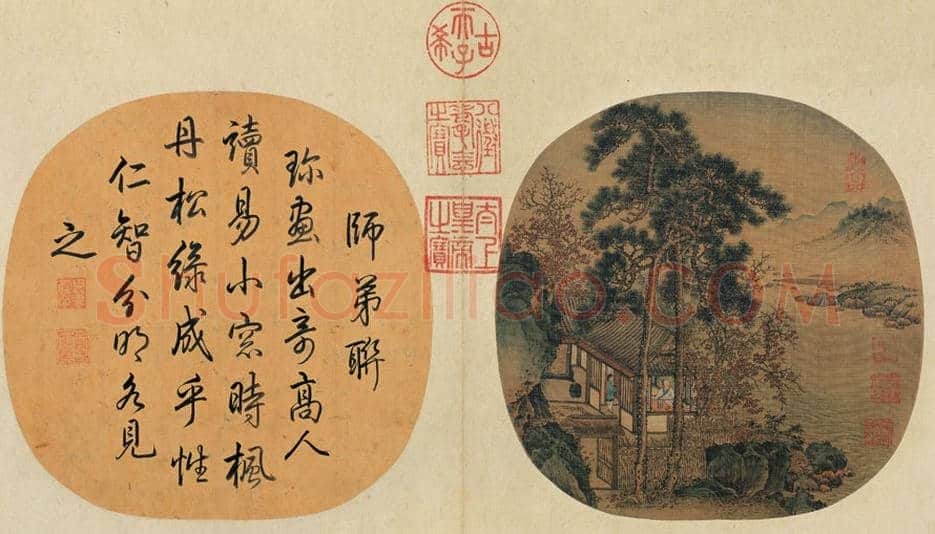 古希天子
八徵耄念之寶
太上皇帝之寶
師弟聯
珎畫出奇高人
讀易小窓時楓
丹松綠成乎性
仁智分明各見
之
Shufaziliao.COM